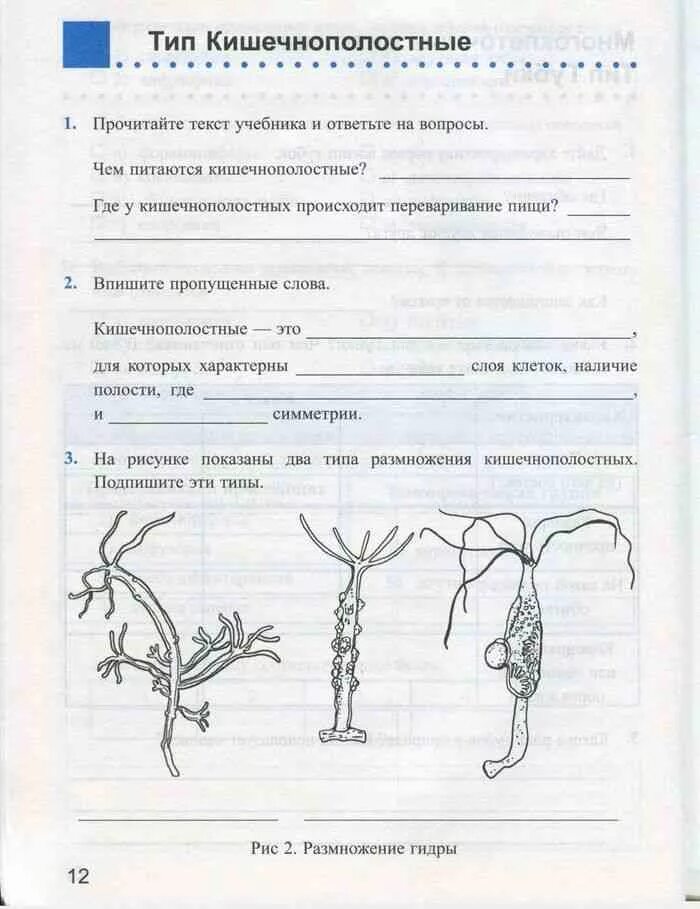 Тип Кишечнополостные
1. Прочитайте текст учебника и ответьте на вопросы.
Чем питаются кишечнополостные?
Где у кишечнополостных происходит переваривание пищи?
2. Впишите пропущенные слова.
Кишечнополостные — это ,
для которых характерны слоя клеток, наличие
полости, где ,
и симметрии.
3. На рисунке показаны два типа размножения кишечнополостных.
Подпишите эти типы.
Рис 2. Размножение гидры
12